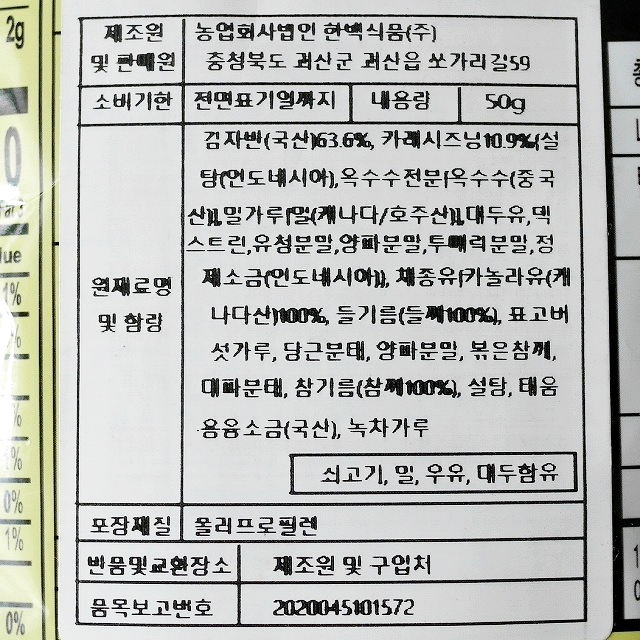 제조원 및 판매원
농업회사법인 한백식품(주)
충청북도 괴산군 괴산읍 쏘가리길59
소비기한 전면표기일까지 내용량 50g
원재료명 및 함량
김자반(국산)63.6%, 카레시즈닝10.9%{설
탕(인도네시아),옥수수전분[옥수수(중국
산)],밀가루[밀(캐나다/호주산)],대두유,덱
스트린,유청분말,양파분말,투메릭분말,정
제소금(인도네시아)}, 채종유[카놀라유(캐
나다산)100%, 들기름(들깨100%), 표고버
섯가루, 당근분태, 양파분말, 볶은참깨,
대파분태, 참기름(참깨100%), 설탕, 태움
용융소금(국산), 녹차가루
쇠고기, 밀, 우유, 대두함유
포장재질 폴리프로필렌
반품및교환장소 제조원 및 구입처
품목보고번호 2020045101572
2g
0
lue
1%
%
%
1%
0%
1%
0%